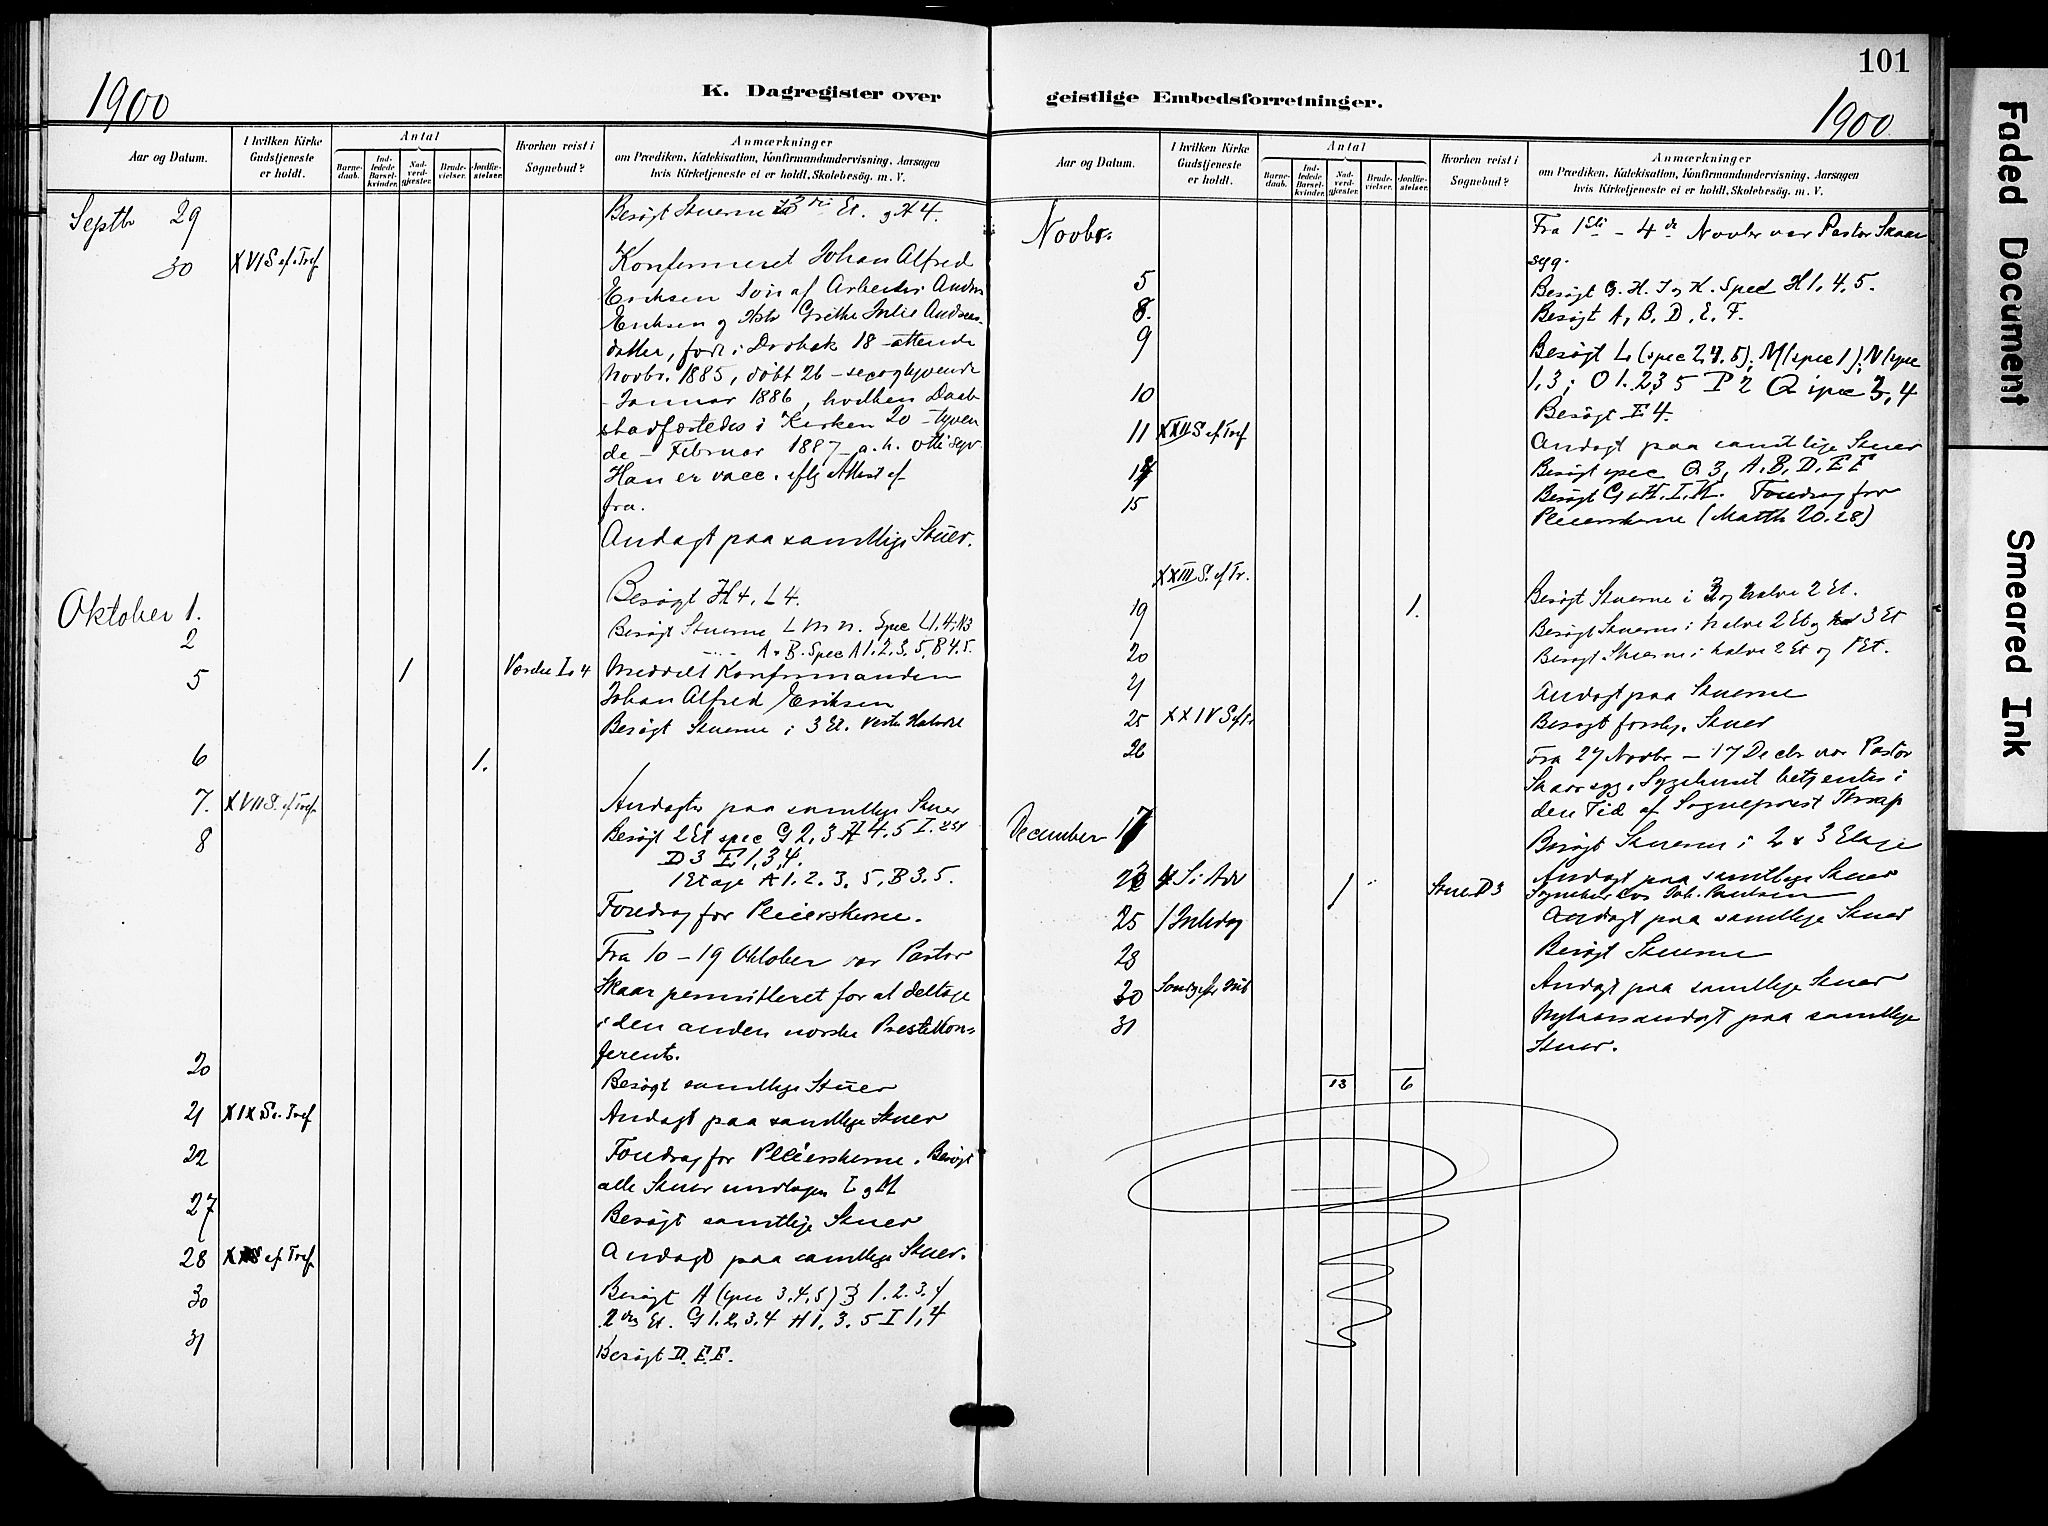 101
1900
K. Dagregister over
geistlige Embedsforretninger.
1900
Aar og Datum.
I hvilken Kirke Gudstjeneste er holdt.
Antal
Barnedaab.
Indledede Barselkvinder.
Nadverdgjester.
Brudevielser.
Jordfæstelser.
Hvorhen reist i Sognebud?
Anmærkninger
om Prædiken, Katekisation, Konfirmandundervisning, Aarsagen
hvis Kirketjeneste ei er holdt, Skolebesøg. m. V.
Septbr 29 Besøgt Stuerne
30 XVI S. ef. Tref. Konfirmeret Johan Alfred
Eriksen Søn af Arbeider Anders
Eriksen og Hstr Grethe Julie Andreas-
datter, født i Drøbak 18 - attende
Novbr. 1885, døbt 26 - sexogtyvende
Januar 1886, hvilken Daab
stadfæstedes i Kirken 20 - tyven
de - Februar 1887 -
Han er vacc. eflg Attest af
fra.
Andagt paa samtlige Stuer.
Oktober 1. Besøgt H4, L4.
2 Besøgt Stuerne L M N. Spec L1.4.N3
A. B. Spec A1.2.3.5, B4.5.
5 1 Værelse L 4 Meddelt Konfirmanden
Johan Alfred Eriksen
Besøgt Stuerne i 3 Et. Vestre Halvdel
6 1.
7. XVII S. ef. Tref. Andagt paa samtlige Stuer
8 Besøgt 2 Et spec G 2, 3 H 4.5 I.
D3 E 1,3,4.
1 Etage A 1. 2. 3. 5, B 3. 5.
Foredrag for Pleierskerne.
Fra 10 - 19 Oktober var Pastor
Skaar permitteret for at deltage
i den anden norske Prestekon-
ferents.
20 Besøgt samtlige Stuer
21 XIX S. Tref. Andagt paa samtlige Stuer
22 Foredrag for Pleierskerne. Besøgt
alle Stuer undtagen L og M
27 Besøgt samtlige Stuer
28 S ef Tref. Andagt paa samtlige Stuer.
30 Besøgt A (spec 3.4.5) B 1. 2. 3. 4
2den Et. G 1. 2. 3. 4 H 1. 3. 5 I 1, 4
31 Besøgt D. E. F.
Aar og Datum.
I hvilken Kirke Gudstjeneste er holdt.
Antal
Barnedaab.
Indledede Barselkvinder.
Nadverdgjester.
Brudevielser.
Jordfæstelser.
Hvorhen reist i Sognebud?
Anmærkninger
om Prædiken, Katekisation, Konfirmandundervisning, Aarsagen
hvis Kirketjeneste ei er holdt, Skolebesøg. m. V.
Novbr. Fra 1ste - 4de Novbr var Pastor Skaar
syg.
5 Besøgt G. H. I og K. Spec H 1, 4. 5.
8. Besøgt A, B. D, E. F.
9 Besøgt L (spec 2.4.5); M (spec 1); N (spec
1, 3; O 1. 2, 3 5 P 2 Q spec 3, 4
10 Besøgt E 4.
11 XXII S. ef Tref Andagt paa samtlige Stuer
Besøgt spec Q 3, A. B, D, E F
15 Besøgt G. H. I. K. Foredrag for
Pleierskerne (Matth 20. 28)
XXIII S. ef Tr.
19 1. Besøgt Stuerne i 3 og halve 2 Et.
Besøgt Stuerne i halve 2 Et og 3 Et
20 Besøgt Stuerne i halve 2 Et og 1 Et.
21 Andagt paa Stuerne
25 XXIV S ef Tr. Besøgt forskj. Stuer
26 Fra 27 Novbr - 17 Decbr var Pastor
Skaar syg. Sygehuset betjentes i
den Tid af Sogneprest Thrap
December 17 Besøgt Stuerne i 2 & 3 Etage
4 S. i Adv 1 Stue D 3 Andagt paa samtlige Stuer
25 1 Juledag Andagt paa samtlige Stuer
28 Besøgt Stuerne
30 Søndag ef Jul Andagt paa samtlige Stuer
31 Nytaarsandagt paa samtlige
Stuer.
13 6
Faded Document
Smeared Ink